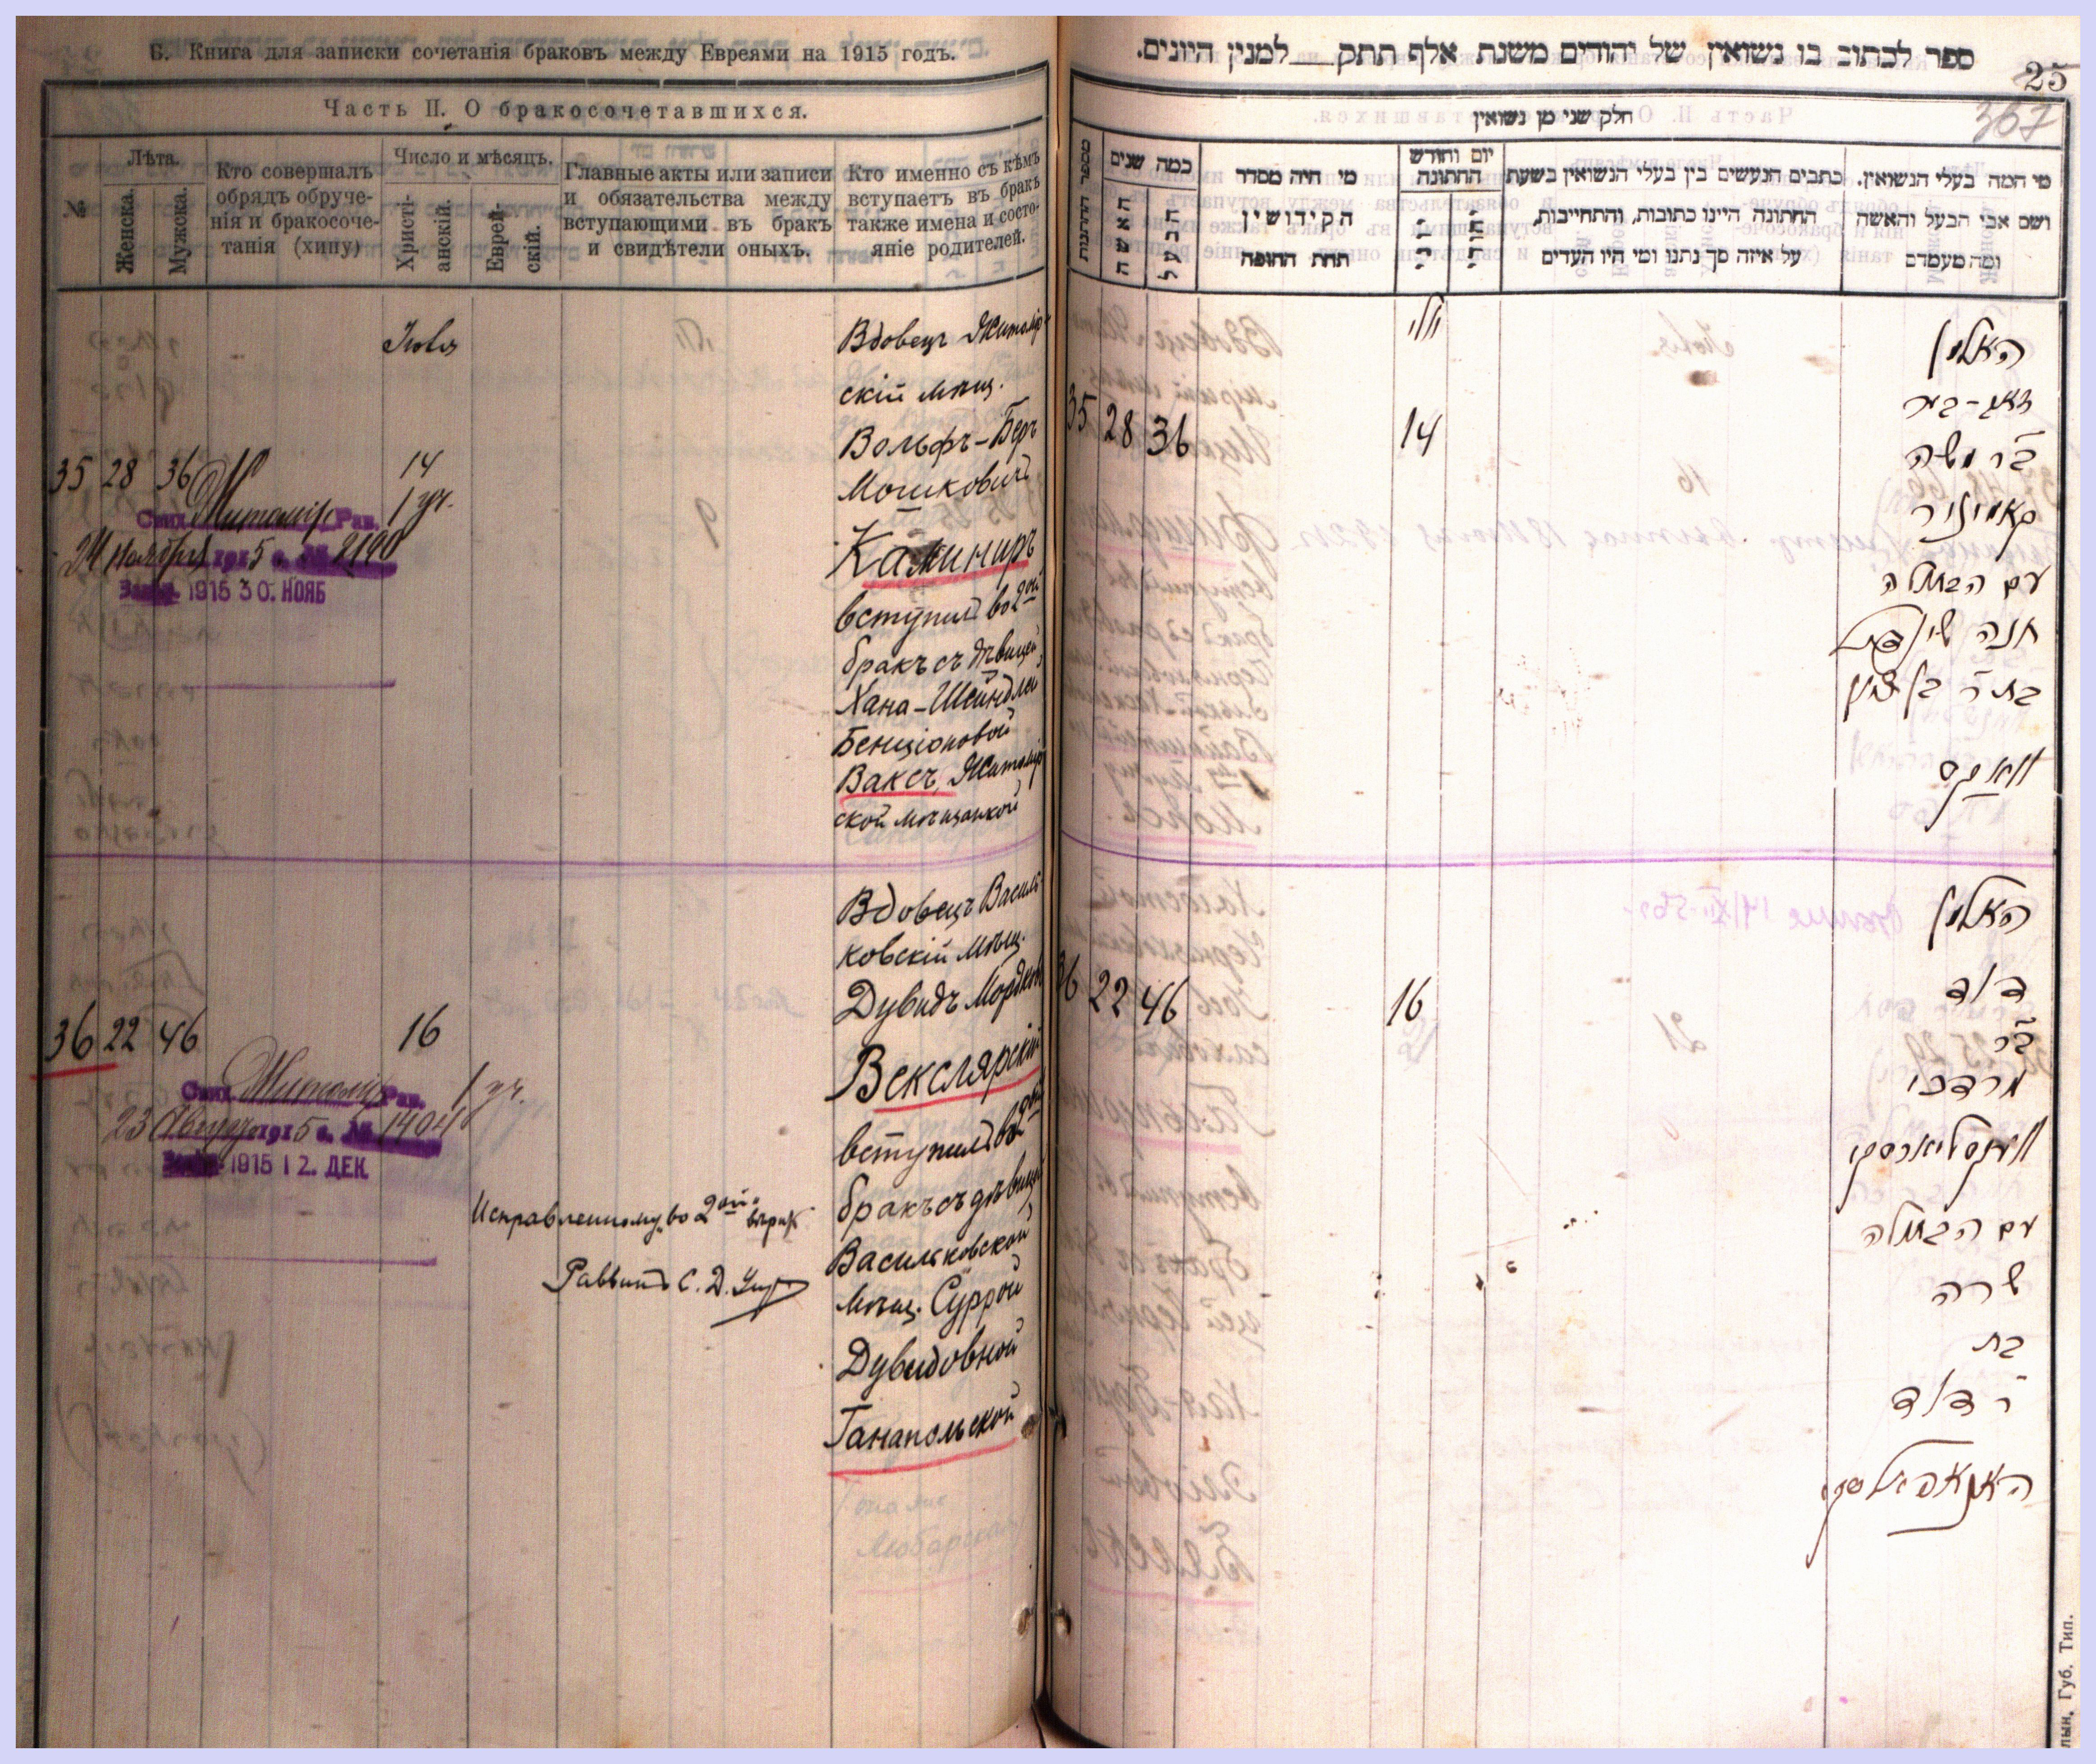 Б. Книга для записки сочетанія браковъ между Евреями на 1915 годъ.
Часть II. О бракосочетавшихся.
№
Лѣта.
Женска.
Мужска.
Кто совершалъ
обрядъ обруче-
нія и бракосоче-
танія (хипу)
Число и мѣсяцъ.
Христі-
анскій.
Еврей-
скій.
Главные акты или записи
и обязательства между
вступающими въ бракъ
и свидѣтели оныхъ.
Кто именно съ кѣмъ
вступаетъ въ бракъ
также имена и состо-
яніе родителей.
Іюля
35 28 36
14
1 уч.
Свид. Житомір. Рав.
24 Ноября 1915 г. № 2190
1915 30. НОЯБ
Вдовецъ Житомір-
скій мѣщ.
Вольфъ-Беръ
Мошковичъ
Каминиръ
вступил. во 2ой
бракъ съ дѣвицей
Хана-Шейндлей
Бенціоновой
Ваксъ, Житомір
ской мѣщанкой
36 22 46
16
1 уч.
Свид. Житомір. Рав.
23 1915 г. № 1404
1915 12. ДЕК
Исправленному „во 2ой“ вѣрить
Раввинъ С. Д.
Вдовецъ Василь-
ковскій мѣщ.
Дувидъ Мордков
Векслярскій
вступил. во 2ой
бракъ съ дѣвицей
Васильковской
мѣщ. Суррой
Дувидовной
Ганапольской
ספר לכתוב בו נשואין של יהודים משנת אלף תתק למנין היונים.
25
367
חלק שני מן נשואין
מספר החתונות
כמה שנים
האשה
הבעל
מי היה מסדר
הקידושין
תחת החופה
יום וחודש
החתונה
כתבים הנעשים בין בעלי הנשואין בשעת
החתונה היינו כתובות, והתחייבות,
על איזה סך נתנו ומי היו העדים
מי המה בעלי הנשואין.
ושם אבי הבעל והאשה
ומה מעמדם
יולי
35 28 36
14
האלמן
זאב-בער
ב״ר משה
קאמיניר
עם הבתולה
חנה שיינדל
בת ר׳ בן ציון
וואקס
36 22 46
16
האלמן
דוד
ב״ר
מרדכי
וועקסליארסקי
עם הבתולה
שרה
בת
ר׳ דוד
האנאפאלסקי
лын. Губ. Тип.